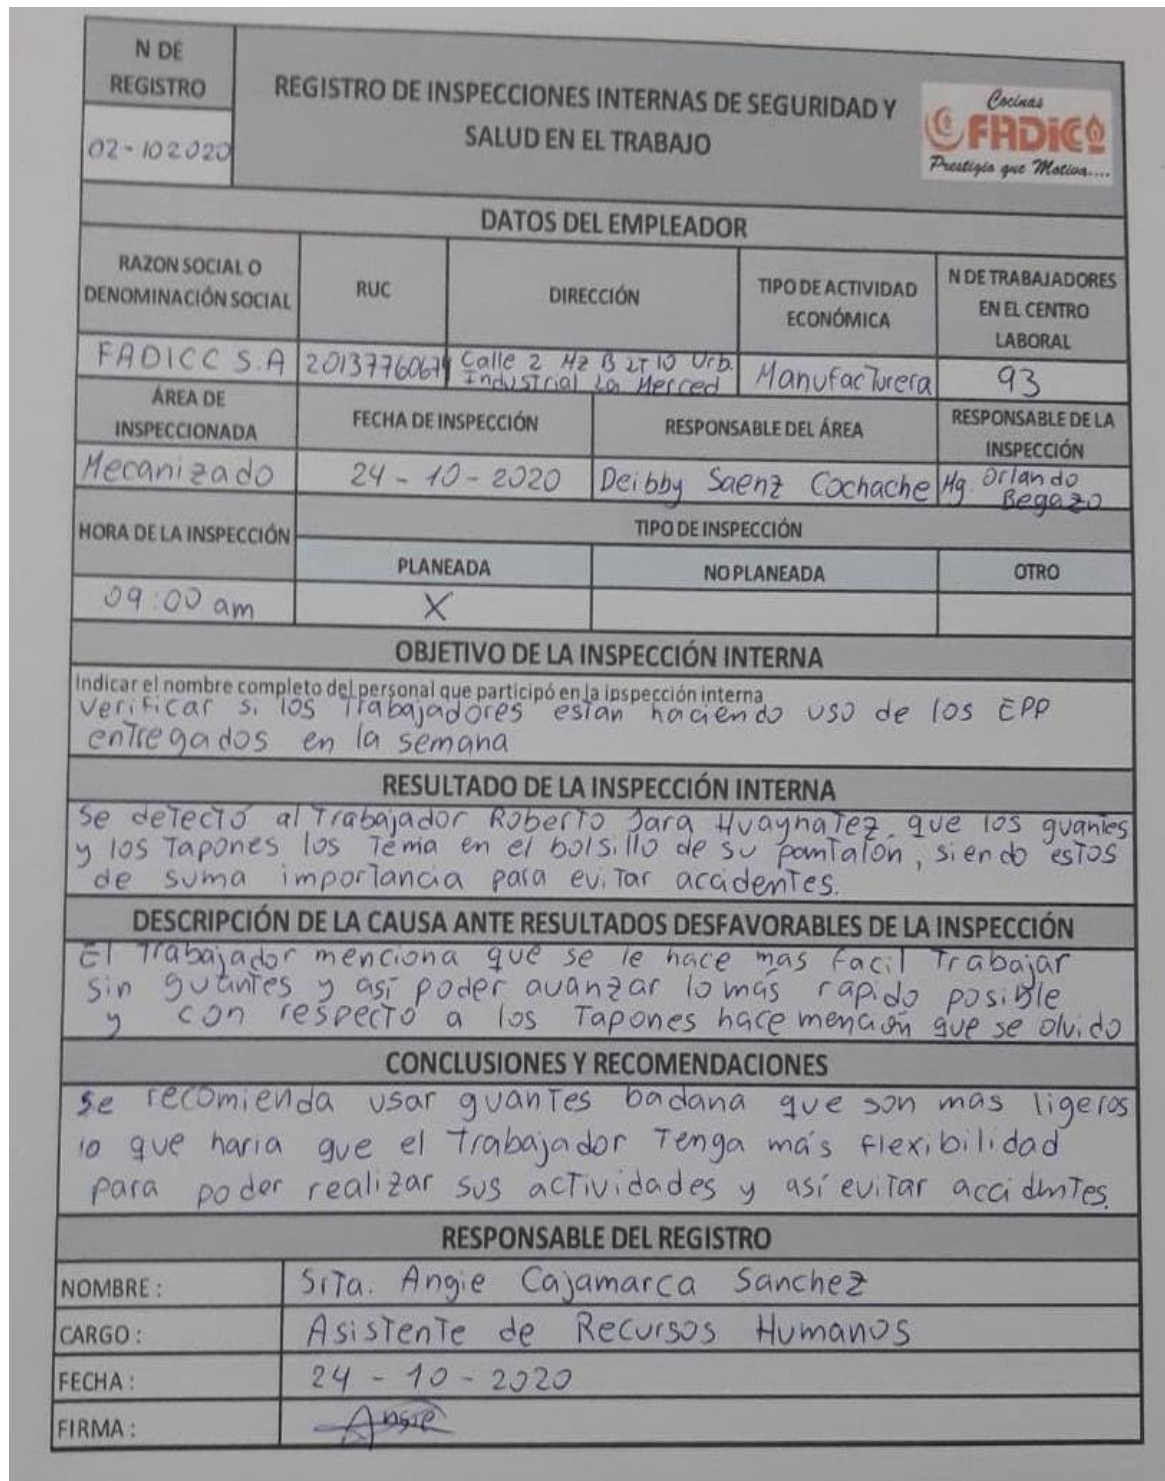 N DE
REGISTRO
02-102020
REGISTRO DE INSPECCIONES INTERNAS DE SEGURIDAD Y
SALUD EN EL TRABAJO
Cocinas
FADICC
Prestigio que Motiva....
DATOS DEL EMPLEADOR
RAZON SOCIAL O
DENOMINACIÓN SOCIAL
RUC
DIRECCIÓN
TIPO DE ACTIVIDAD
ECONÓMICA
N DE TRABAJADORES
EN EL CENTRO
LABORAL
FADICC S.A
Calle 2 Mz B LT 10 Urb.
Industrial La Merced
Manufacturera
93
ÁREA DE
INSPECCIONADA
FECHA DE INSPECCIÓN
RESPONSABLE DEL ÁREA
RESPONSABLE DE LA
INSPECCIÓN
Mecanizado
24 - 10 - 2020
Deibby Saenz Cochache
Mg. Orlando
Begazo
HORA DE LA INSPECCIÓN
TIPO DE INSPECCIÓN
PLANEADA
NO PLANEADA
OTRO
09:00 am
X
OBJETIVO DE LA INSPECCIÓN INTERNA
Indicar el nombre completo del personal que participó en la inspección interna
Verificar si los Trabajadores estan haciendo uso de los EPP
entregados en la semana
RESULTADO DE LA INSPECCIÓN INTERNA
Se detectó al Trabajador Roberto Jara Huaynatez, que los guantes
y los Tapones los Tenia en el bolsillo de su pantalón, siendo estos
de suma importancia para evitar accidentes.
DESCRIPCIÓN DE LA CAUSA ANTE RESULTADOS DESFAVORABLES DE LA INSPECCIÓN
El Trabajador menciona que se le hace mas facil Trabajar
sin guantes y así poder avanzar lo más rapido posible
y con respecto a los Tapones hace mención que se olvido
CONCLUSIONES Y RECOMENDACIONES
se recomienda usar guantes badana que son mas ligeros
lo que haria que el Trabajador Tenga más flexibilidad
para poder realizar sus actividades y así evitar accidentes.
RESPONSABLE DEL REGISTRO
NOMBRE :
Srta. Angie Cajamarca Sanchez
CARGO :
Asistente de Recursos Humanos
FECHA :
24 - 10 - 2020
FIRMA :
Angie